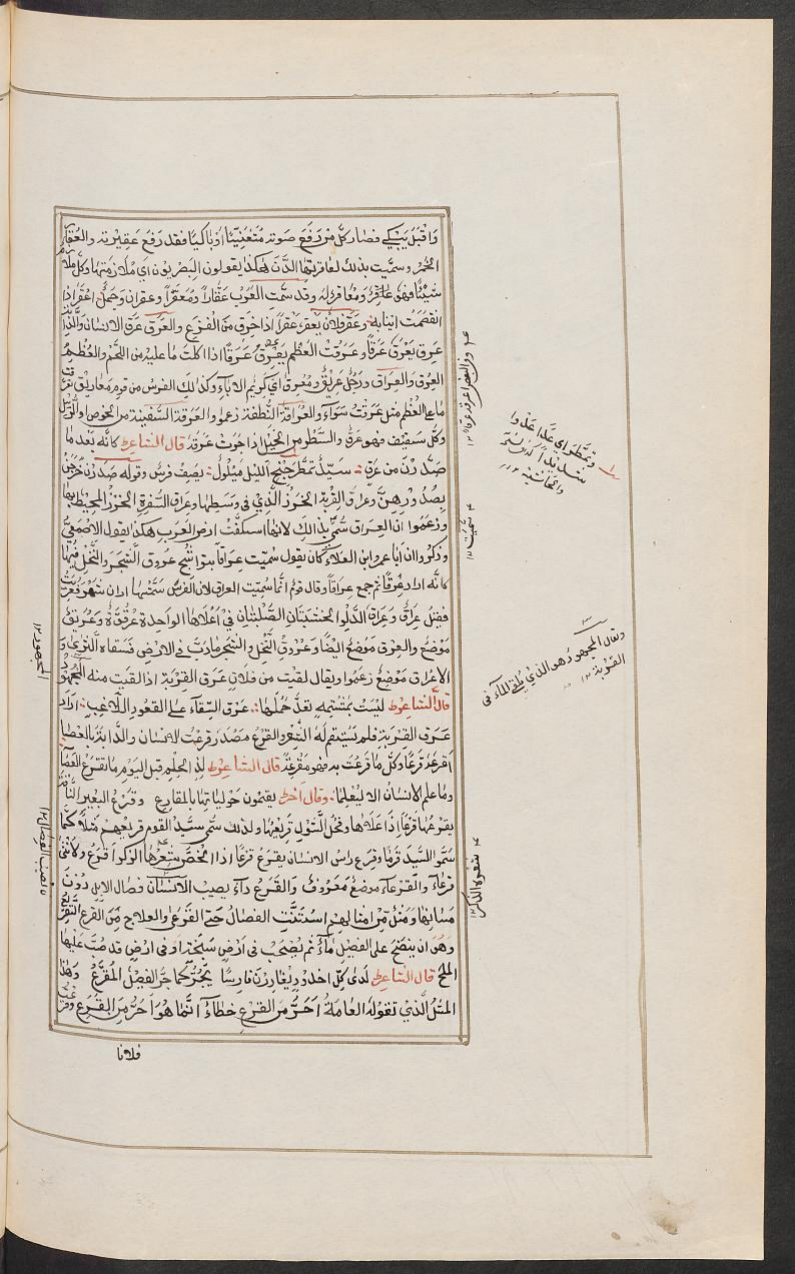 وَاقبَلَ يَبْكي فصَار كلّ مَن رَفَعَ صَوته مُتَغَنِيّاً اَوْ باكيًا فقد رفع عَقِيرته والعُقار
الخمرُ وسمّيت بذلك لعاقرتها الدَّنَ هكذا يقولون البَصْريّون اَي مُلازمتها وكلّ
شيْئًا فهوَ عاقِرٌ ومُعاقِرٌ له وقد سمّت العَرَب عَقّارًا ومُعَقِّرًا وعقران وجَمَلٌ اعقَر اذا
انقصَمَت انيابه وعَقِرَ فلان يَعقَر عَقَرًا اذا خرِق مِنَ الفزع والعَرَق عرَق الانسان والدّابّة
عَرِق يَعْرَق عَرَقًا وعَرَقْتُ العَظمَ يَعْرُقُ عَرْقًا اذا اكلتَ مَا عليه من اللحم والعَظْمُ
العَرْق والعُرَاق ورَجُل عَرِيقٌ ومُعرِق اي كريم الاباءِ وكذلك الفرسُ من قوم مَعارِيق
مَا على العَظم مثل عَرقت سَوَاء والعُراقة النُّطفة زعموا والعَرَقة السَّفيفة من الخوص
وكلّ سَفيف فهو عَرَق والسَّطر من الخَيْل اذا جَرت عَرَقة قال الشاعر كانّه بَعْدَ ما
صَدَّرْنَ من عَرَقٍ سِيدٌ تمطّر جُنْحَ الليل مَبلُولُ يصِف فرسًا وقوله صَدَّرْن خَرَجْن
بصُدُورهنَّ وعِراق القِربة الخرز الّذي في وَسَطِها وعِراق السُّفرة الخرز المحِيط بها
وزعَمُوا انّ العِراق سُمّي بذالك لانها اسْتكفّت ارض العَرَب هكذا يقول الاصْمَعيُّ
وذكروا ان ابا عمرو ابن العلاء كان يقول سُمّيت عِراقًا بتواشُج عروق الشَّجَر والنَّخل فيها
كانّه اراد عِرقًا ثم جمع عِراقًا وقال قوم انّما سُمّيت العراق لانّ الفُرس سَمّتها ايران شهر فعُربت
فقيل عِراق وعراقَ الدَّلو الخشبَتان الصَّليبتان في اَعْلاها الواحِدة عَرقوة وعُريق
مَوْضِع والعِرق مَوْضِع ايْضًا وعروق النَّخل والشجر مَا دَبَّ في الارض فسَقاه الثرى و
الاعراق مَوْضِع زعَمُوا ويقال لقيت من فلان عرَق القِرْبة اذا لقيت منه المجهود
قال الشاعر ليْسَت بمَشتمةٍ تعدّ حَمْلها عَرَق السِّقاء على القعود اللاغب اراد
عَرَق القربة فلم يَستقم لهُ الشِّعر والقَرع مَصْدر قرعْت الانسان والدّابّة بالعَصا
اَقرعُه قرعًا وكلّ ما قرعت به فهو مقرعَة قال الشاعر لِذِي الحِلم قبل اليَوم مَا تقرع العَصَا
وما علم الانسان الا ليَعْلَما وقال آخر يقيمون حَوليّاتها بالمقارع وقرع البَعير الناقة
يقرعُها قرعًا اذا علاها وفحل الشّول قريعُها ولذلك سمّي سَيّد القوم قريعهم
سَمّوا السّيد قرمًا وقرِع راس الانسان يقرَع قرعًا اذا انحَصَّ شعرُها الذكر اقرع والانثى
قرعاء والقرعاء موضع مَعْروف والقَرَع داء يصيب الانسان فصال الابل دُون
مَسَانّها ومثل مِن امثالهم استَنَّت الفصالُ حتى القرعى والعلاج مِن القرع التقريع
وَهُوَ ان ينضح على الفصيل ماء ثم يُسْحَب في اَرض سَبخة او في ارض قد صُبّ عَليها
الملح قال الشاعر لَدى كلّ اخدود يغادرن فارسًا يُجَرُّ كما جُرَّ الفصيل المُقَرَّعُ وهٰذا
المثل الّذي تقوله العامة اَحرّ من القَرْع خطاءٌ انّما هوَ اَحرّ مِن القَرَع وقرعت
فلانا
وتمطّر اي عَدا عَدْوا
شديدًا
الحاشية
ويقال المجهود هو الذي
القربة
سميت
شعره الذكر
المجهود ١٢